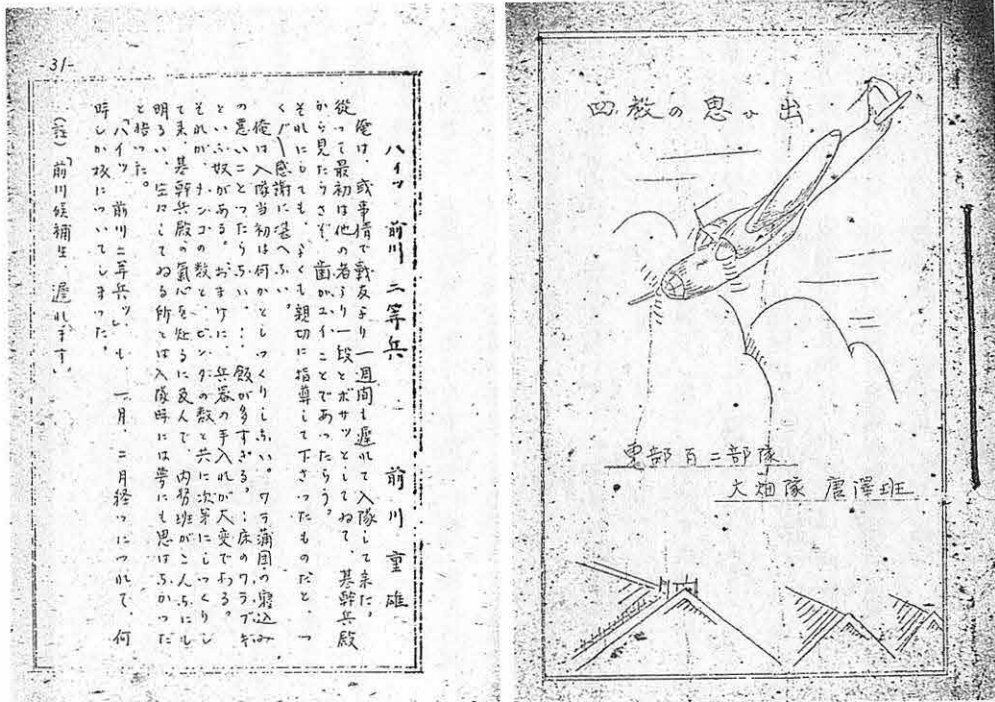 -31-
ハイッ 前川二等兵 前川重雄
俺は、或事情で戦友より一週間も遅れて入隊して来た。
従って最初は他の者より一段とボサッとしてゐて、基幹兵殿
から見たらさぞ歯がユイことであったらう。
それにしても、よくも親切に指導して下さったものだと、つ
く〴〵感謝に堪へない。
俺は入隊当初は何かとしっくりしない。ワラ蒲団の寝込み
の悪いことったらない。…飯が多すぎる。…床のワラブキ
といふ奴がある。おまけに、兵器の手入れが大変である。
それが、ナンコの数と、ビンタの数と共に次第にしっくりし
て来、基幹兵殿の気心を知るに及んで、内務班がこんなにも
明るい、生々してゐる所とは入隊時には夢にも思はなかった
と悟った。
「ハイッ、前川二等兵ッ」も、一月、二月経つにつれて、何
時しか板についてしまった。
(註)「前川候補生、遅れます」
四教の思ひ出
東部百二部隊
大畑隊 唐澤班